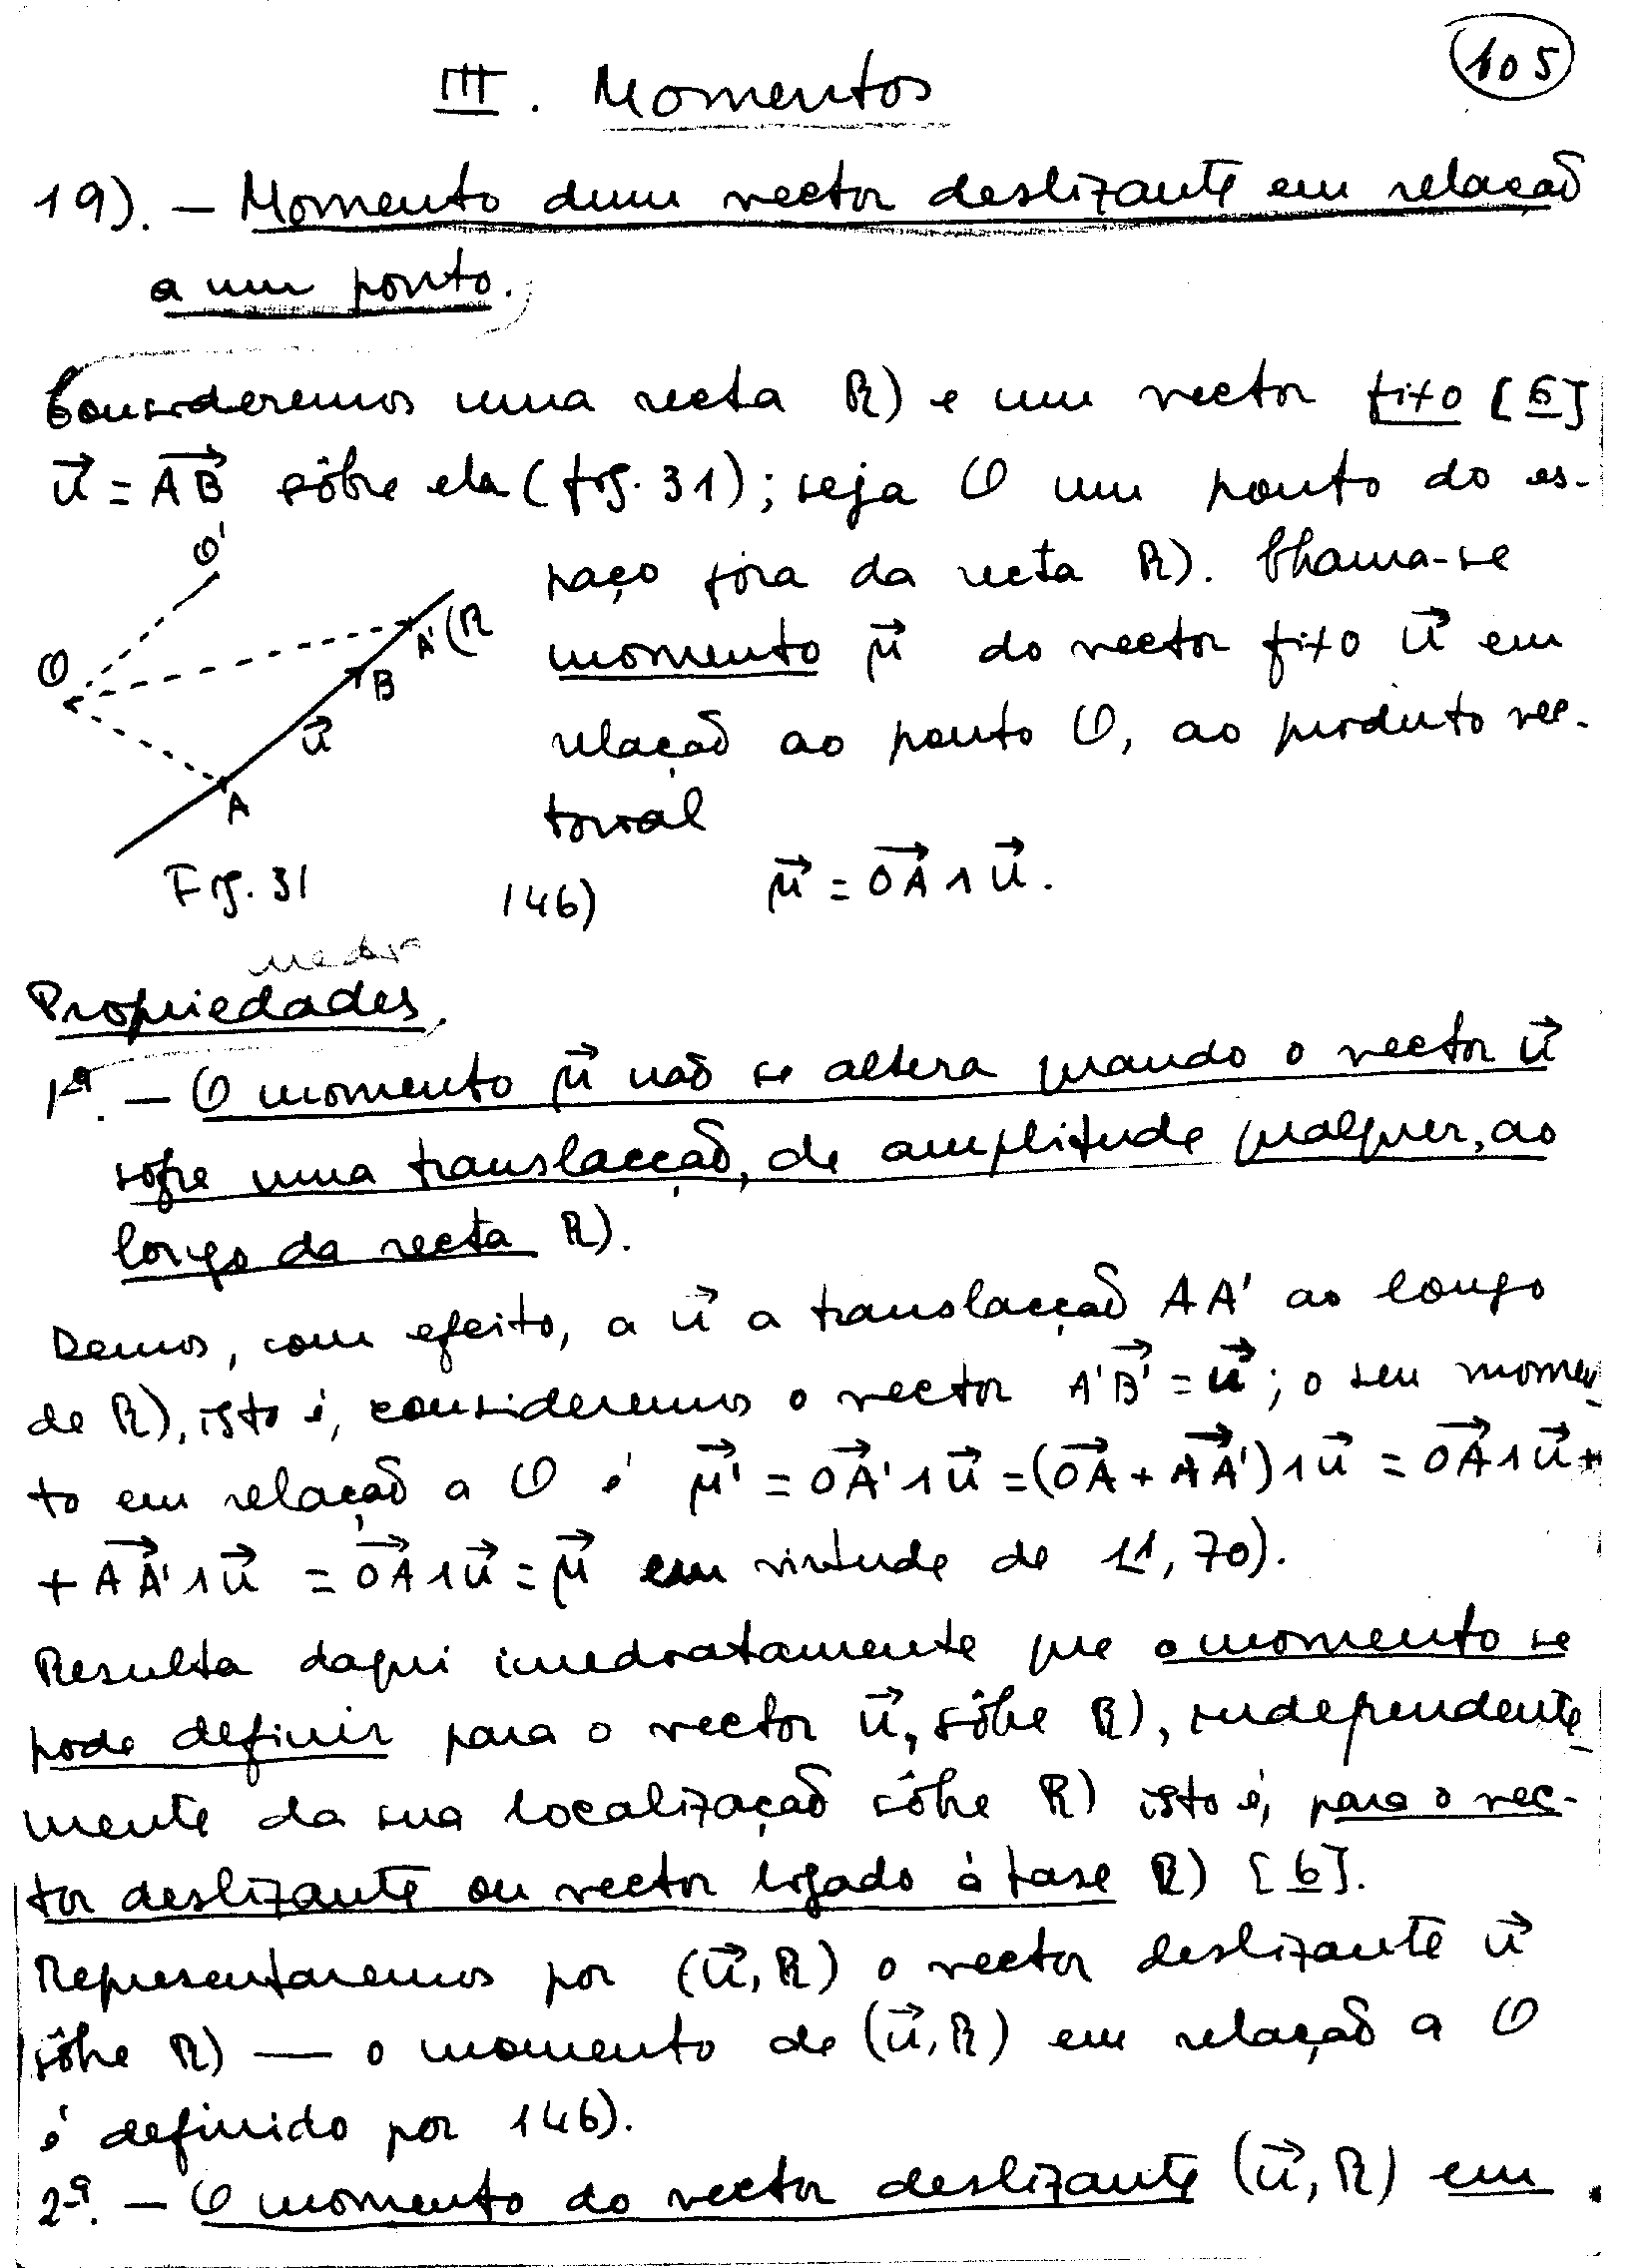 105
III. Momentos
19). — Momento dum vector deslizante em relação
a um ponto.
Consideremos uma recta R) e um vector fixo [6]
u⃗ = A⃗B⃗ sôbre ela (fig. 31); seja O um ponto do es-
paço fóra da recta R). Chama-se
momento μ⃗ do vector fixo u⃗ em
relação ao ponto O, ao produto vec-
torial
O'
O
A' (R
B
u⃗
A
Fig. 31
146) μ⃗ = O⃗A⃗ ∧ u⃗.
Propriedades.
1ª. — O momento μ⃗ não se altera quando o vector u⃗
sofre uma translacção, de amplitude qualquer, ao
longo da recta R).
Demos, com efeito, a u⃗ a translacção AA' ao longo
de R), isto é, consideremos o vector A'B'⃗ = u⃗; o seu momen-
to em relação a O é μ⃗' = OA'⃗ ∧ u⃗ = (OA⃗ + AA'⃗) ∧ u⃗ = OA⃗ ∧ u⃗ +
+ AA'⃗ ∧ u⃗ = OA⃗ ∧ u⃗ = μ⃗ em virtude de 11, 70).
Resulta daqui imediatamente que o momento se
pode definir para o vector u⃗, sôbre R), independente-
mente da sua localização sôbre R) isto é, para o vec-
tor deslizante ou vector ligado à base R) [6].
Representaremos por (u⃗, R) o vector deslizante u⃗
sôbre R) — o momento de (u⃗, R) em relação a O
é definido por 146).
2ª. — O momento do vector deslizante (u⃗, R) em